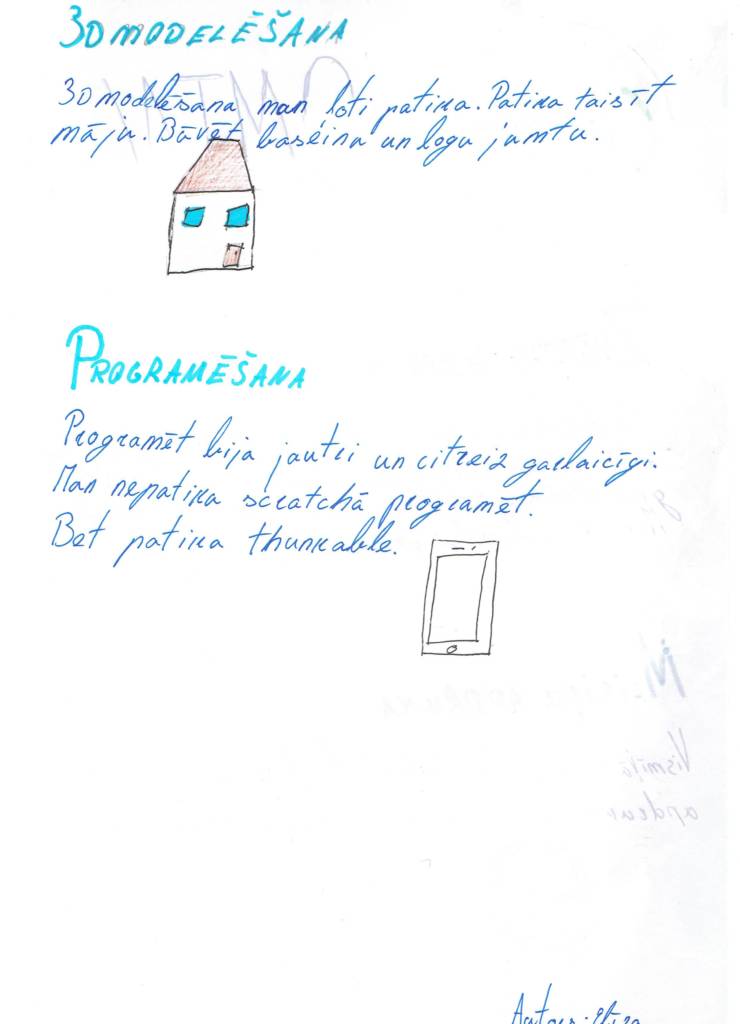 3D MODELĒŠANA
3D modelēšana man ļoti patika. Patika taisīt
māju. Būvēt baseina un logu jumtu.
PROGRAMĒŠANA
Programēt bija jautri un citreiz garlaicīgi.
Man nepatika scratchā programēt.
Bet patika thunkable.